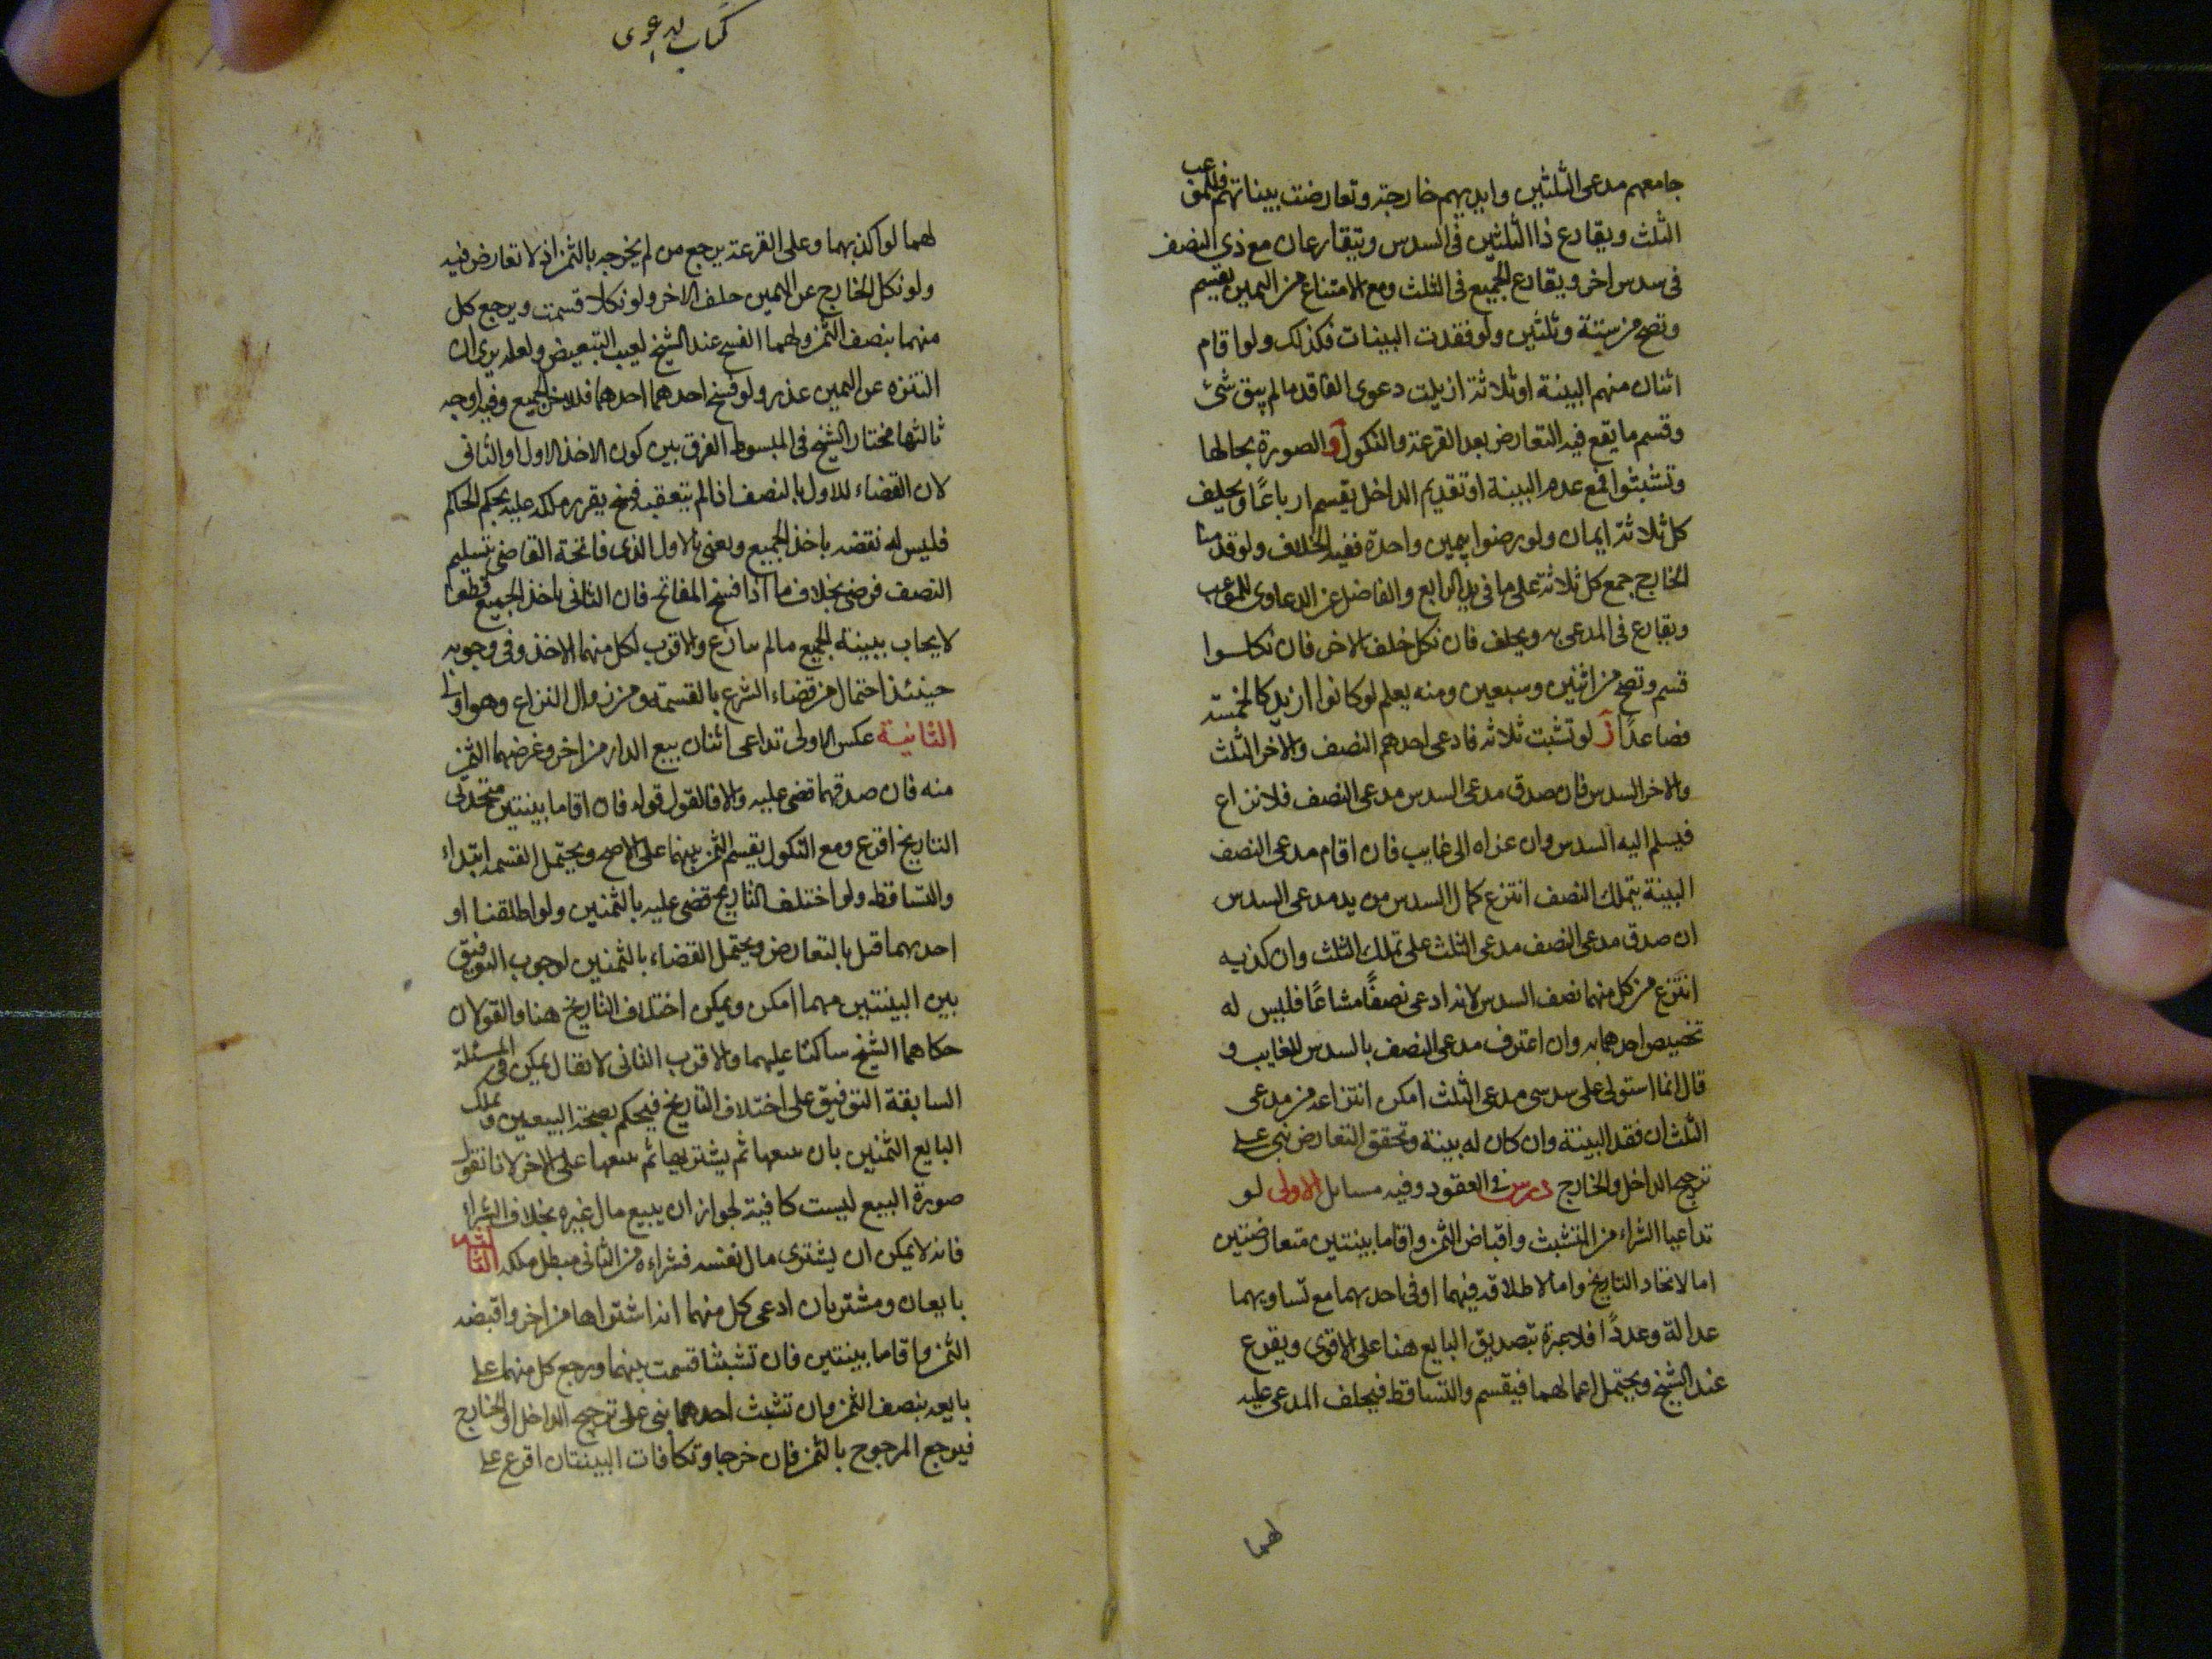 جامعهم مدعى الثلثين وايديهم خارجة وتعارضت بيناتهم فللمستوعب
الثلث ويقارع ذا الثلثين فى السدس ويتقارعان مع ذى النصف
فى سدس اخر ويقارع الجميع فى الثلث ومع الامتناع من اليمين يقسم
وتصح من ستة وثلثين ولو فقدت البينات فكذلك ولو اقام
اثنان منهم البينة او ثلاثة ازيلت دعوى الفاقد ما لم يبق شئ
وقسم ما يقع فيه التعارض بعد القرعة والنكول و والصورة بحالها
وتشبثوا فمع عدم البينة او تقديم الداخل يقسم ارباعًا ويحلف
كل ثلاثة ايمان ولو رضوا بيمين واحدة ففيه الخلاف ولو قدمنا
الخارج جمع كل ثلاثة على ما فى يد الرابع والفاضل عن الدعاوى للمستوعب
ويقارع فى المدعى به ويحلف فان نكل حلف الاخر فان نكلوا
قسم وتصح من اثنين وسبعين ومنه يعلم لو كانوا ازيد كالخمسة
فصاعدًا ز لو تشبث ثلاثة فادعى احدهم النصف والاخر الثلث
والاخر السدس فان صدق مدعى السدس مدعى النصف فلا نزاع
فيسلم اليه السدس وان عزاه الى غايب فان اقام مدعى النصف
البينة بتملك النصف انتزع كمال السدس من يد مدعى السدس
ان صدق مدعى النصف مدعى الثلث على تملك الثلث وان كذبه
انتزع من كل منهما نصف السدس لانه ادعى نصفًا مشاعًا فليس له
تخصيص احدهما به وان اعترف مدعى النصف بالسدس للغايب و
قال انما استولى على سدسى مدعى الثلث امكن انتزاعه من مدعى
الثلث ان فقد البينة وان كان له بينة وتحقق التعارض بنى على
ترجيح الداخل والخارج درس فى العقود وفيه مسايل الاولى لو
تداعيا الشراء من المتشبث واقباض الثمن واقاما بينتين متعارضتين
اما لاتحاد التاريخ واما لاطلاقه فيهما او فى احديهما مع تساويهما
عدالة وعددًا فلا عبرة بتصديق البايع هنا على الاقوى ويقرع
عند الشيخ ويحتمل اعمالهما فيقسم والتساقط فيحلف المدعى عليه
لهما
كتاب الدعوى
لهما لو اكذبهما وعلى القرعة يرجع من لم يخرج به بالثمن اذ لا تعارض فيه
ولو نكل الخارج عن اليمين حلف الاخر ولو نكلا قسمت ويرجع كل
منهما بنصف الثمن ولهما الفسخ عند الشيخ لعيب التبعيض ولعله يرى ان
التنزه عن اليمين عذر ولو فسخ احدهما فللاخر الجميع وفيه اوجه
ثالثها مختار الشيخ فى المبسوط الفرق بين كون الاخذ الاول او الثانى
لان القضاء للاول بالنصف اذا لم يتعقبه فسخ يقرر ملكه عليه بحكم الحاكم
فليس له نقضه باخذ الجميع ويعنى بالاول الذى فاتحه القاضى بتسليم
النصف فرضى بخلاف ما اذا فسخ المفاتح فان الثانى ياخذ الجميع قطعا
لا يجاب ببينة الجميع ما لم ينازع والاقرب لكل منهما الاخذ وفى وجوبه
حينئذ احتمال من قضاء الشرع بالقسمة ومن زوال النزاع وهو اولى
الثانية عكس الاولى تداعى اثنان بيع الدار من اخر وغرضهما الثمن
منه فان صدقهما قضى عليه والا فالقول قوله فان اقاما بينتين متحدتى
التاريخ اقرع ومع النكول يقسم الثمن بينهما على الاصح ويحتمل القسمه ابتداء
والتساقط ولو اختلف التاريخ قضى عليه بالثمنين ولو اطلقتا او
احديهما قيل بالتعارض ويحتمل القضاء بالثمنين لوجوب التوفيق
بين البينتين مهما امكن ويمكن اختلاف التاريخ هنا والقولان
حكاهما الشيخ ساكتا عليهما والاقرب الثانى لا يقال يمكن فى المسئلة
السابقة التوفيق على اختلاف التاريخ فيحكم بصحة البيعين وتملك
البايع الثمنين بان يبيعها ثم يشتريها ثم يبيعها على الاخر لانا نقول
صورة البيع ليست كافية لجواز ان يبيع مال غيره بخلاف الشراء
فانه لا يمكن ان يشترى مال نفسه فشراءه من الثانى مبطل ملكه الثالثة
بايعان ومشتريان ادعى كل منهما انه اشتراها من اخر واقبضه
الثمن واقاما بينتين فان تشبثا قسمت بينهما ورجع كل منهما على
بايعه بنصف الثمن وان تشبث احدهما بنى على ترجيح الداخل او الخارج
فيرجع المرجوح بالثمن فان خرجا وتكافات البينتان اقرع على